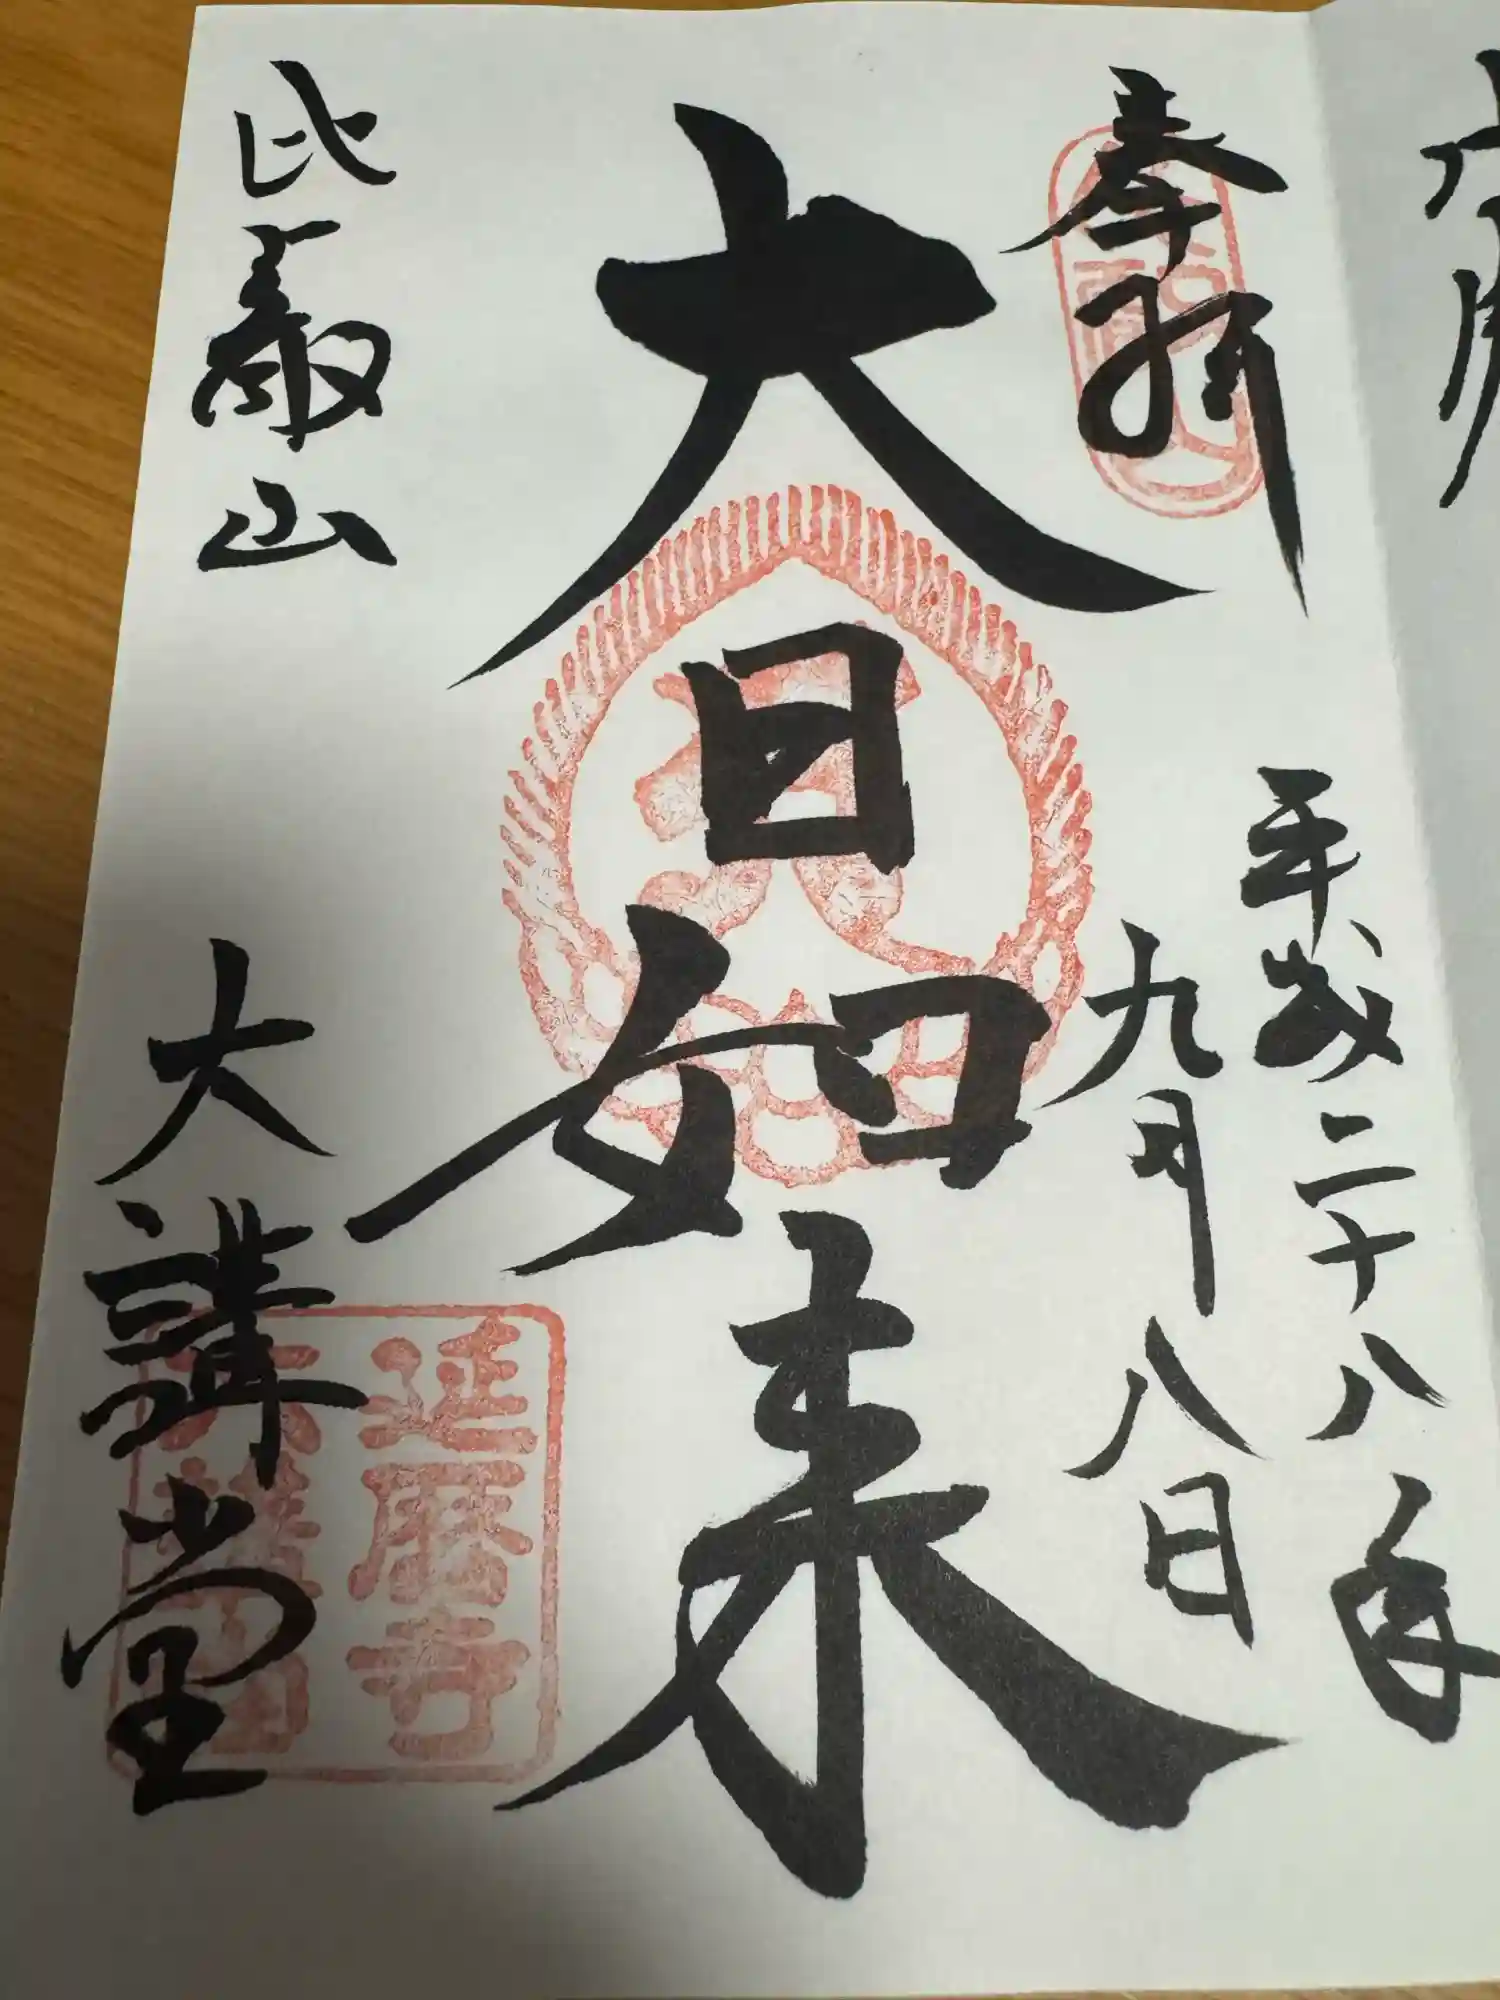 奉拝
平成二十八年
九月八日
大日如来
比叡山
大講堂
延暦寺
大講堂